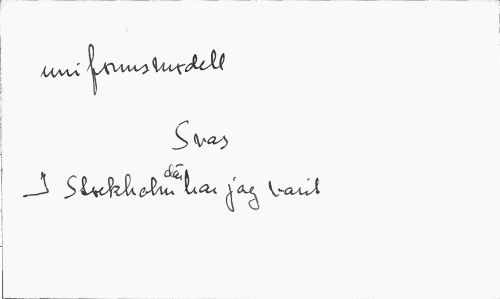 uniformsmodell
Svas
I Stockholm där har jag varit